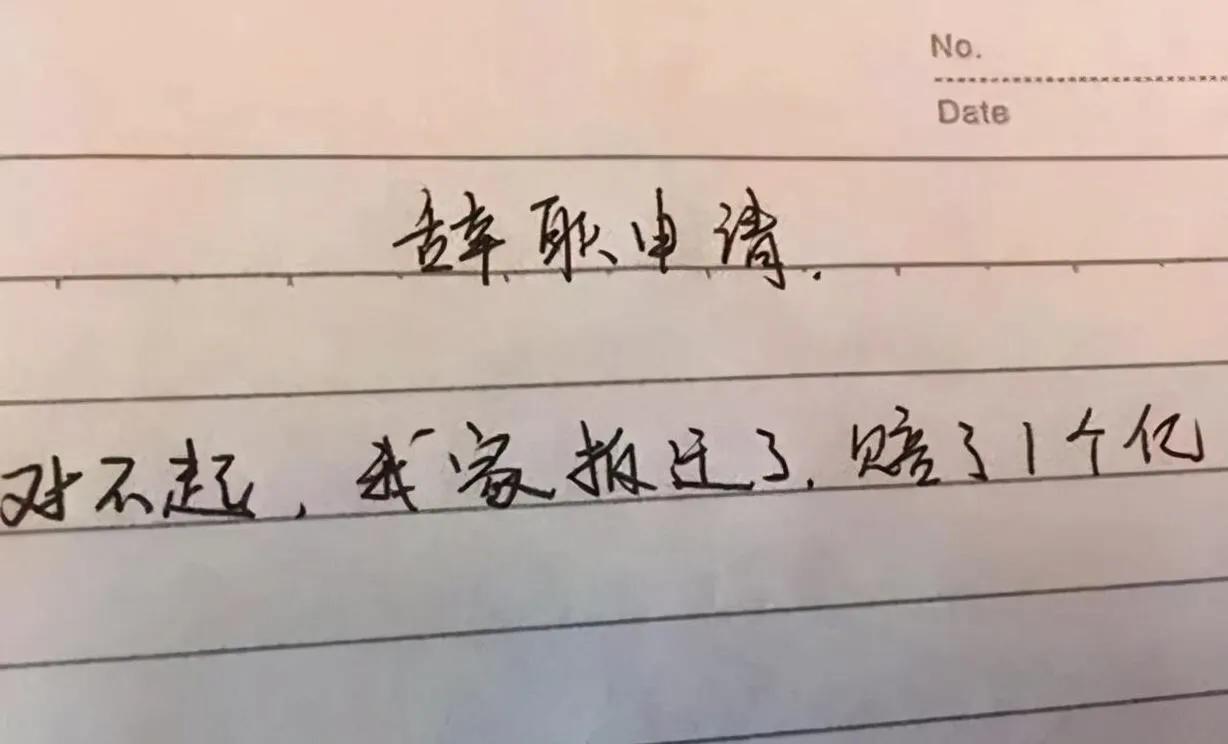 No.
Date
辞职申请.
对不起，我家搬迁了，赔了1个亿